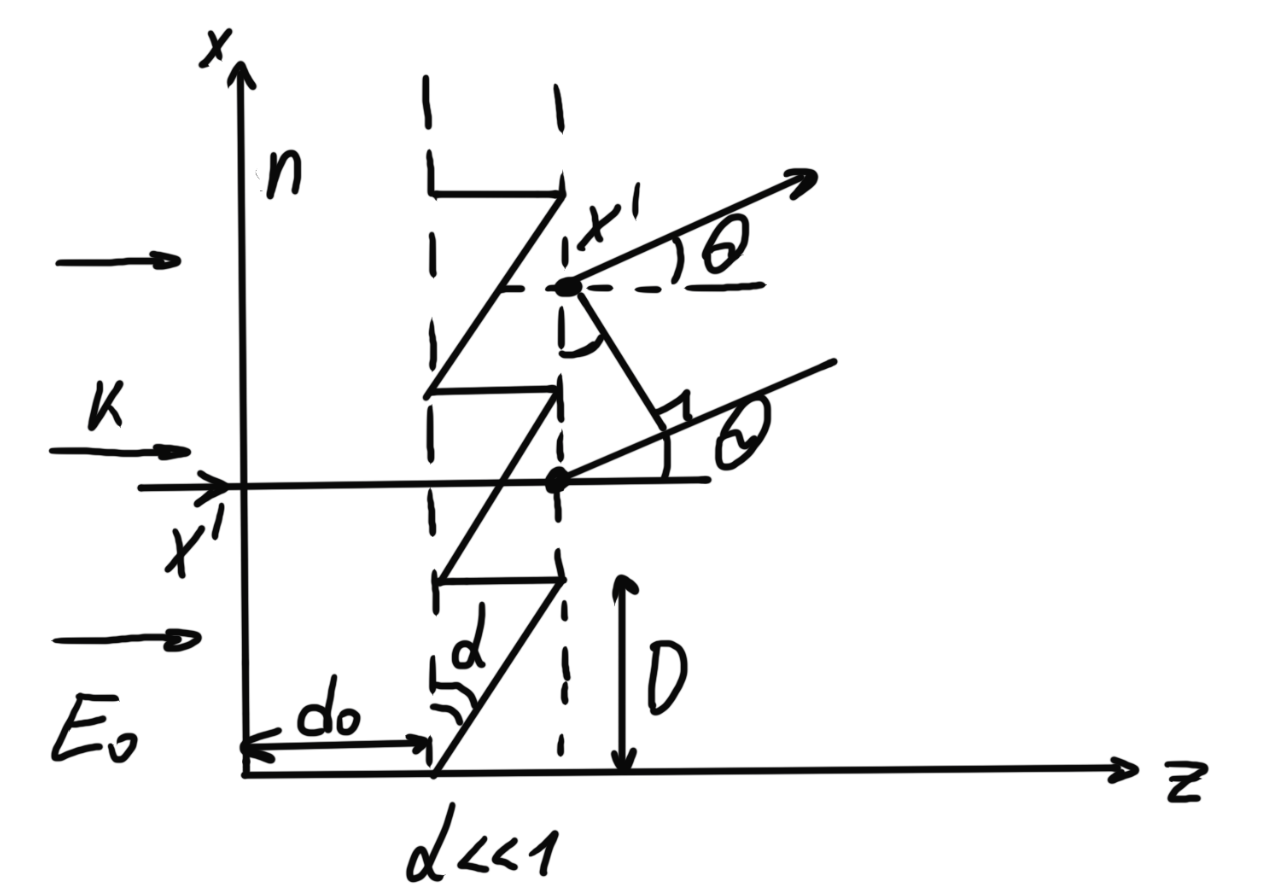 x
n
x'
θ
K
θ
x'
α
D
E₀
d₀
z
α<<1